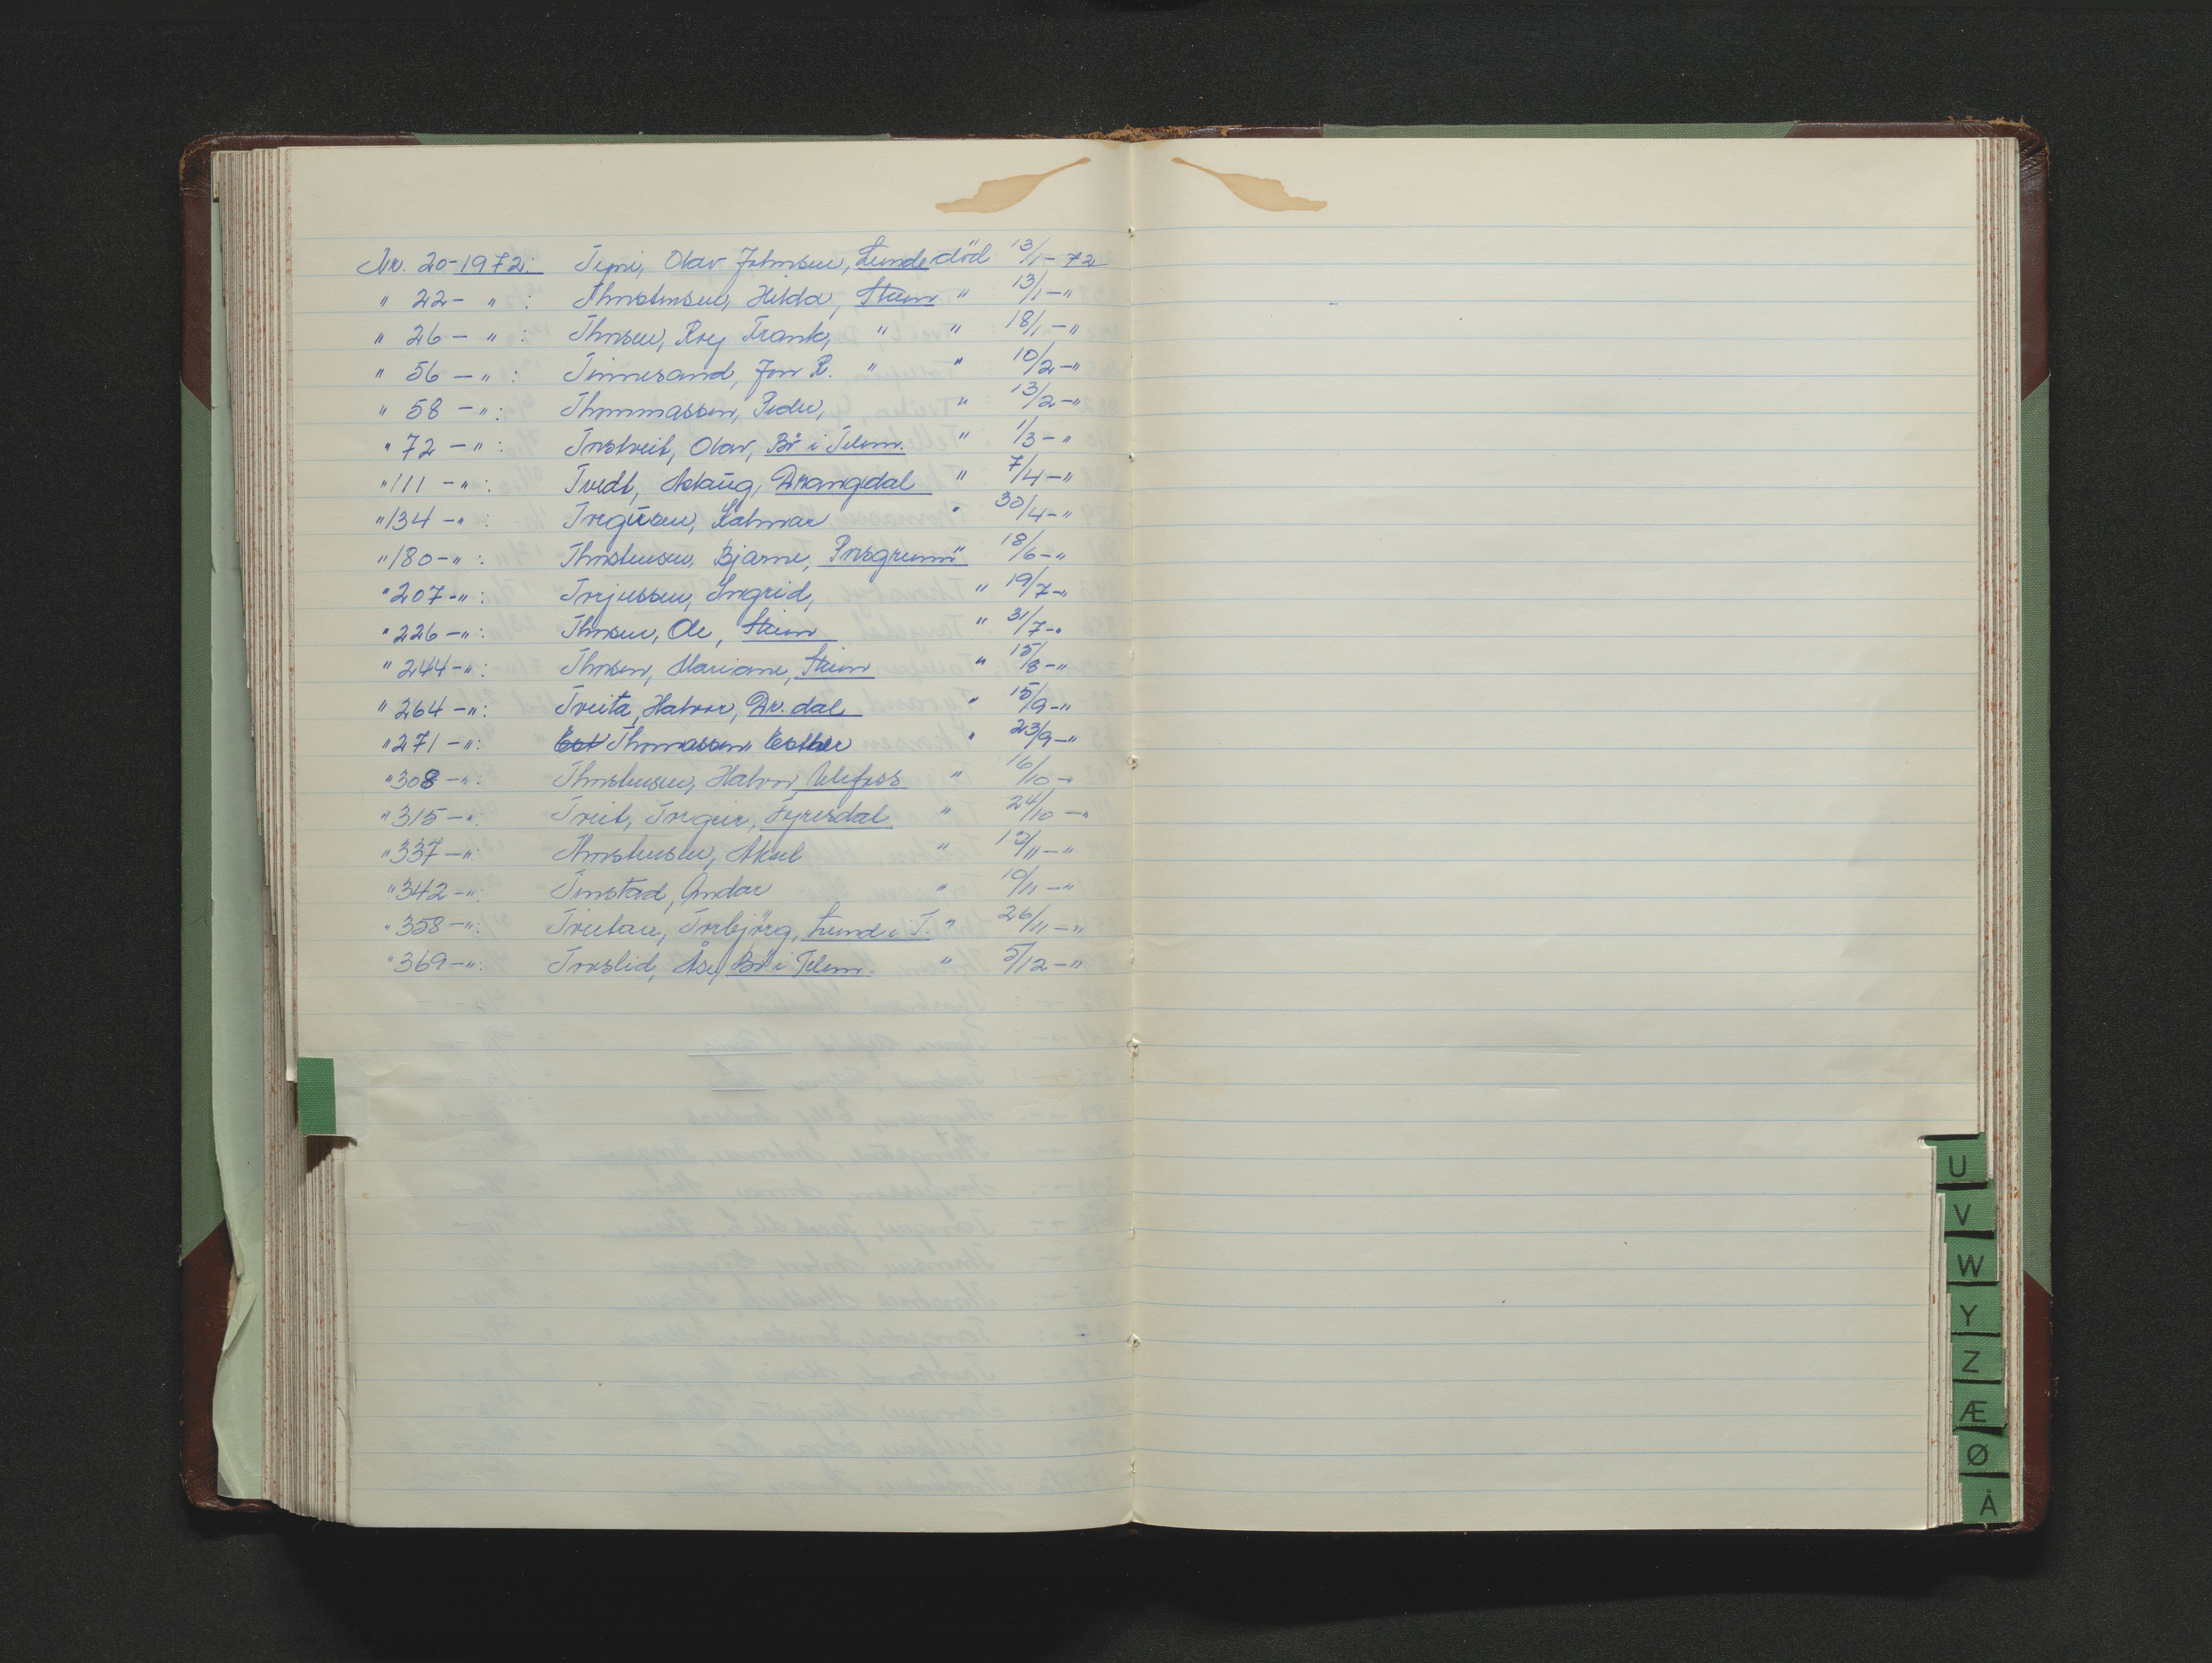 Nr. 20-1972: Temi, Olav Johnsen, Lunde död 13/1-72
" 22- " : Thorstensen, Hilda, Skien " 13/1-"
" 26- " : Thorsen, Roy Frank, " " 18/1-"
" 56 - " : Tinnesand, Jon R. " " 10/2-"
" 58 - " : Thommassen, Peder, " 13/2-"
" 72 - " : Torstveit, Olav, Bö i Telem. " 1/3-"
" 111 - " : Tvedt, Aslaug, Drangedal " 7/4-"
" 134 - " : Torgusen, Kalmar " 30/4-"
" 180 - " : Thorstensen, Bjarne, Porsgrunn " 18/6-"
" 207 - " : Torjussen, Ingrid, " 19/7-"
" 226 - " : Thorsen, Ole, Skien " 31/7-"
" 244 - " : Thorsen, Mariane, Skien " 15/8-"
" 264 - " : Tveita, Halvor, Dr.dal " 15/9-"
" 271 - " : Est Thomassen Esther " 23/9-"
" 308 - " : Thorstensen, Halvor, Ulefoss " 16/10-"
" 315 - " : Tveit, Torgeir, Fyresdal " 24/10-"
" 337 - " : Thorstensen, Aksel " /11-"
" 342 - " : Tinstad, Gndar " 10/11-"
" 358 - " : Tveitan, Torbjörg, Lunde i T. " 26/11-"
" 369 - " : Traslid, Åse, Bö i Telem. " 5/12-"
U
V
W
Y
Z
Æ
Ø
Å